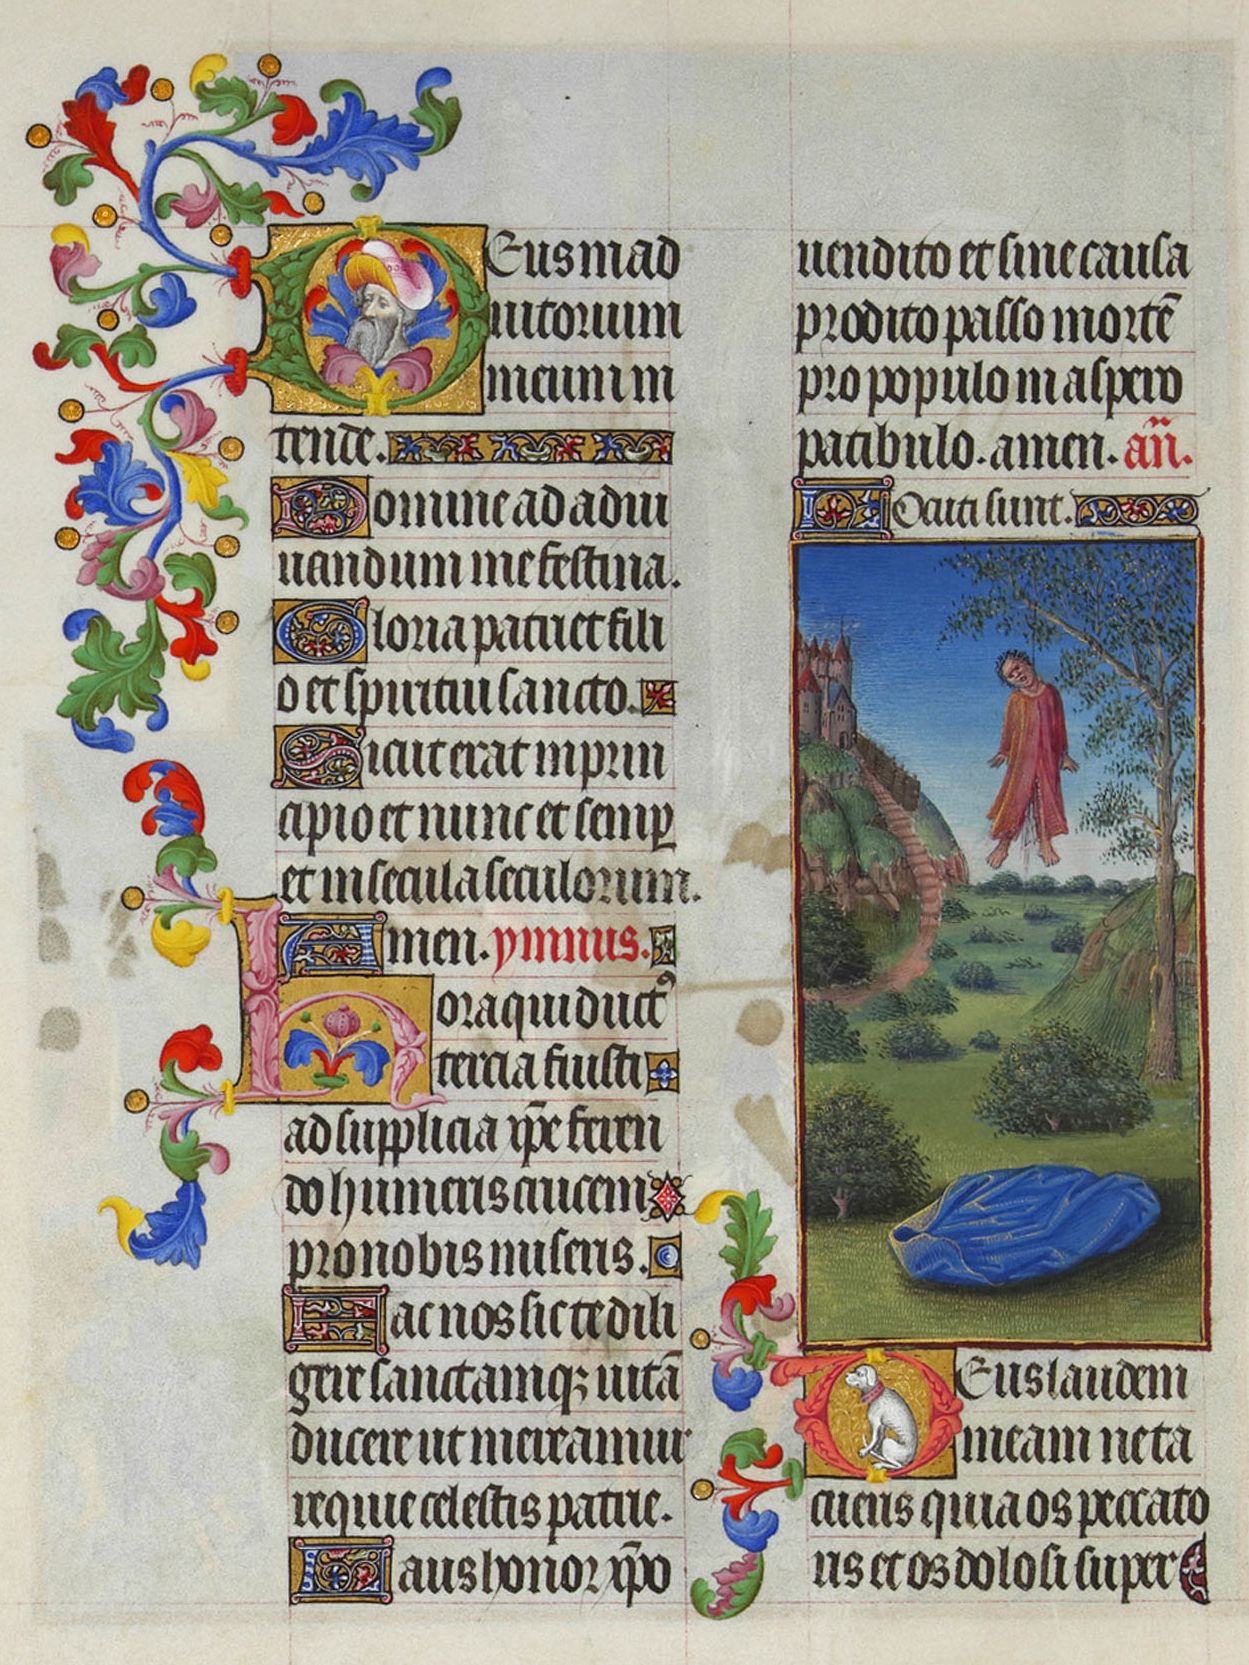 Deus in ad
iutorium
meum in
tende.
Domine ad adiu
uandum me festina.
Gloria patri et fili
o et spiritui sancto.
Sicut erat in prin
cipio et nunc et semp̱
et in secula seculorum.
Amen. ymnus.
Hora qui duct⁹
tercia fuisti
ad supplicia xp̄e feren
do humeris crucem
pro nobis miseris.
Fac nos sic te dili
gere sanctamqꝫ uitā
ducere ut mereamur
requie celestis patrie.
Laus honor xp̄o
uendito et sine causa
prodito passo mortē
pro populo in aspero
patibulo. amen. an̄.
Locuti sunt.
Deus laudem
meam ne ta
cueris quia os peccato
ris et os dolosi super